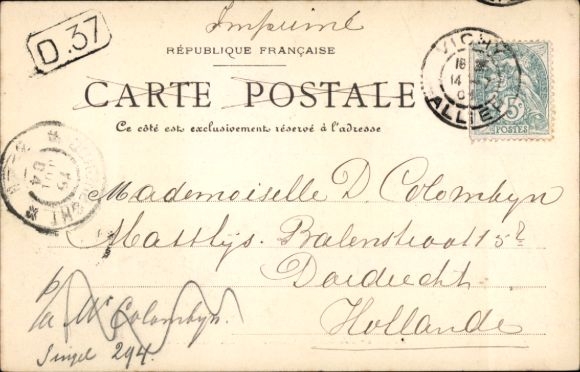 Imprimé
D.37
RÉPUBLIQUE FRANÇAISE
CARTE POSTALE
Ce côté est exclusivement réservé à l'adresse
VICHY
14
ALLIER
5c
POSTES
DORDRECHT
Mademoiselle D. Colombyn
Matthijs. Balenstraat 15
Dordrecht
Hollande
Colombyn.
Singel 294.